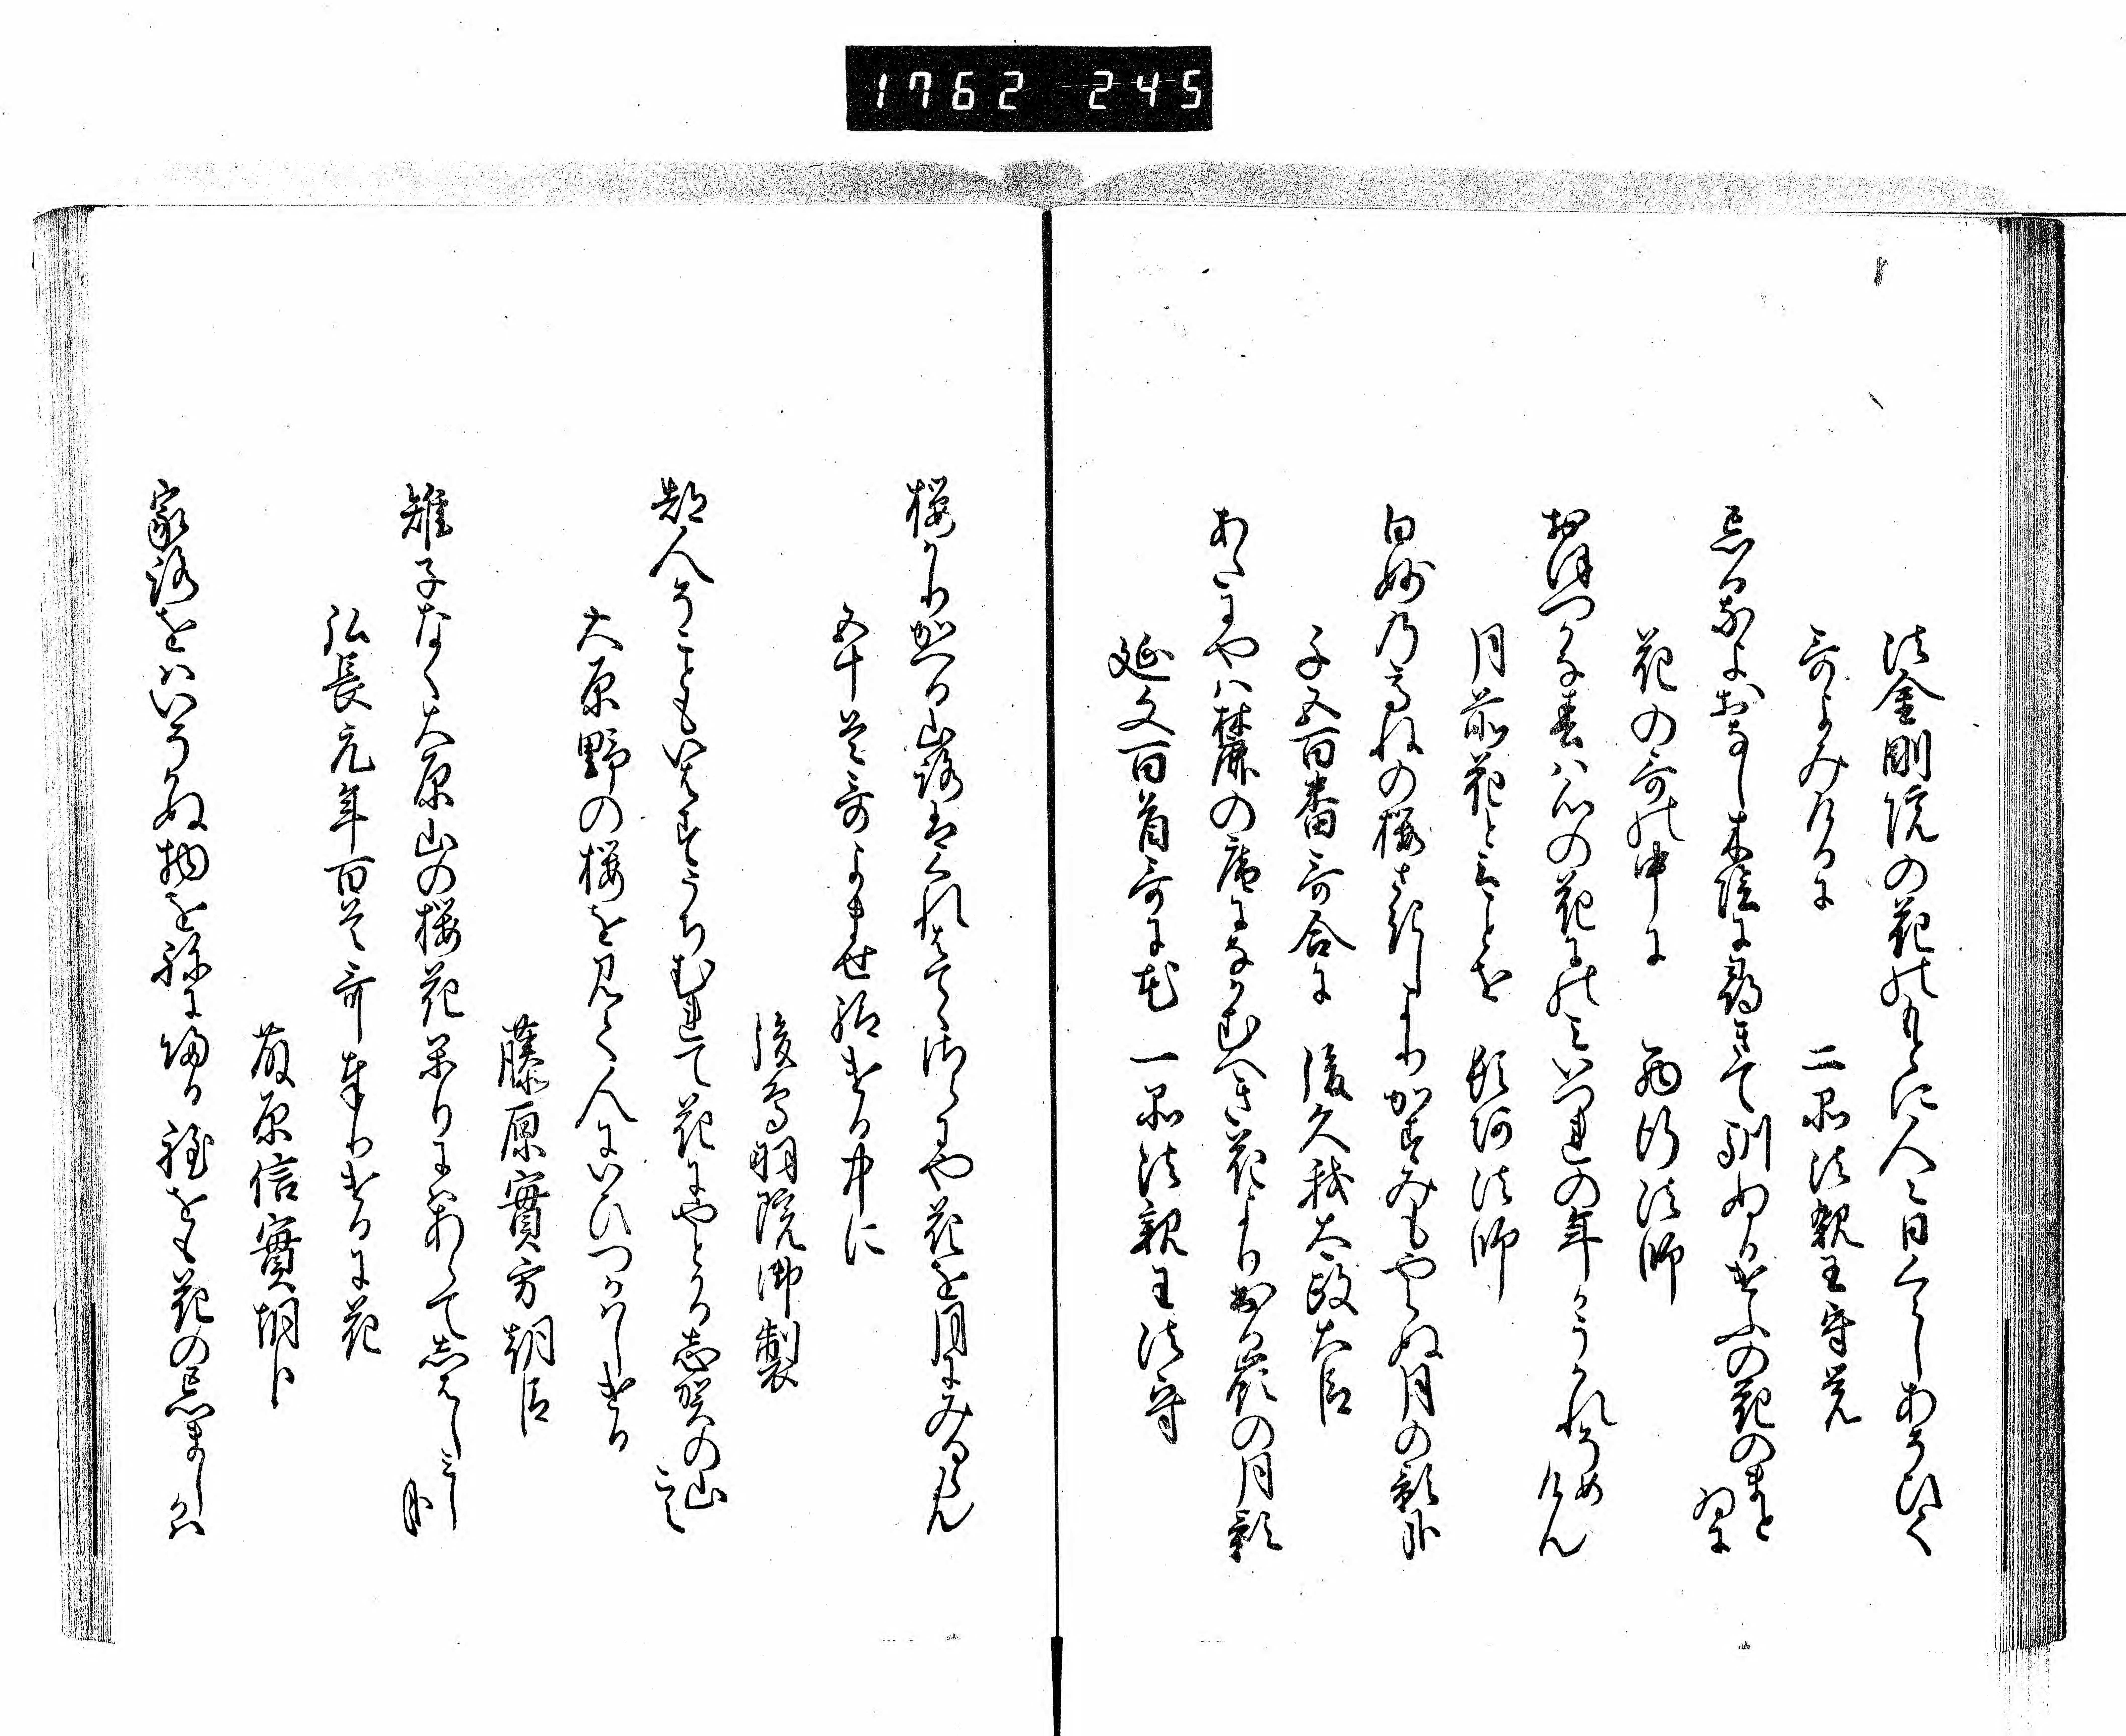 1762 245
法金剛院の花のもとに人々日くらしあそひて
哥よみけるに　二品法親王守覚
忘るなよおなし木陰に尋きて馴ぬるけふの花のまとゐに
花の哥の中に　西行法師
おほつかな春は心の花にのみいつれの年かうかれそめけん
月前花といふことを　頓阿法師
白妙の高ねの桜さきしよりかすみもやらぬ月の影哉
千五百番哥合に　後久我太政大臣
あたにやは麓の庵になかむへき花より出る峯の月影
延文百首哥に花　一品法親王法守
桜かり帰る山路はくれはてゝさらにや花を月にみるらん
五十首哥よませ給ける中に
後鳥羽院御製
都人そこともいはすうちむれて花にやとかる志賀の山こえ
大原野の桜を見て人にいひつかはしける
藤原實方朝臣
雉子なく大原山の桜花かりにはあらてしはしみし哉
弘長元年百首哥奉りけるに花
藤原信實朝臣
家路をはいそかぬ物を ねに帰る 程をも花の忘ましかは